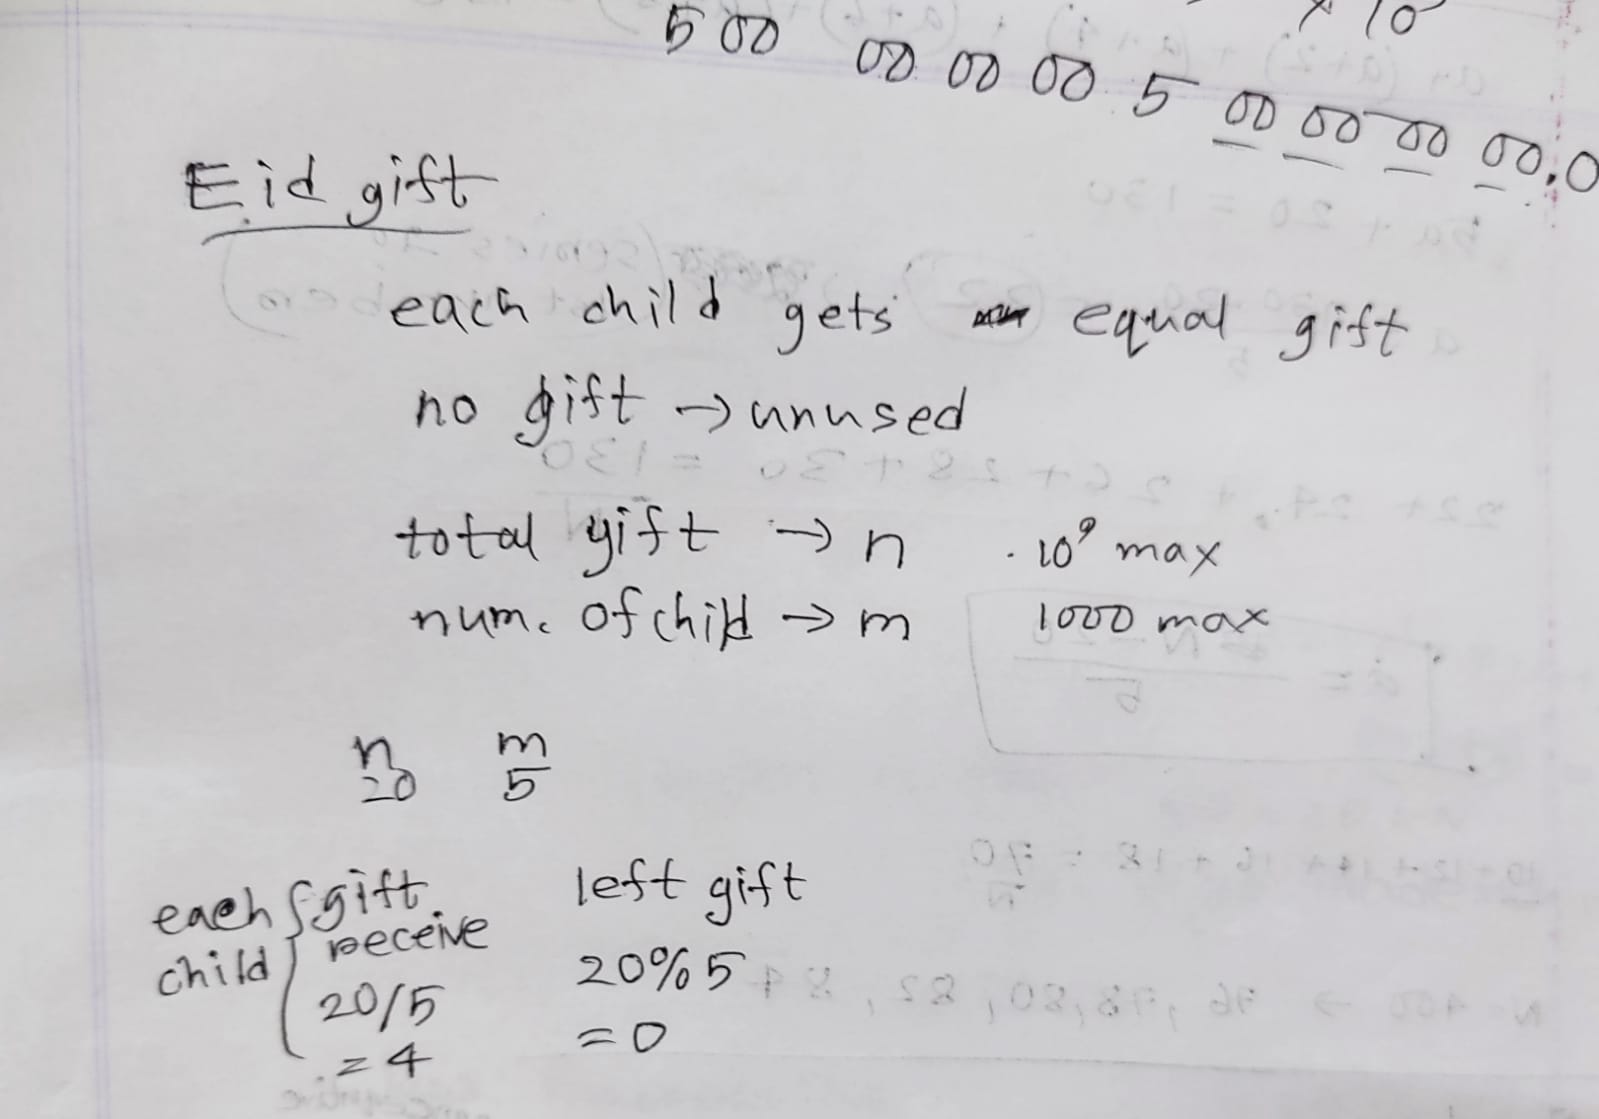 x 10
500 00 00 00 5 00 00 00 00.0
Eid gift
each child gets equal gift
no gift → unused
total gift → n . 10⁹ max
num. of child → m 1000 max
n m
20 5
each child { gift receive 20/5 = 4
left gift
20%5
= 0